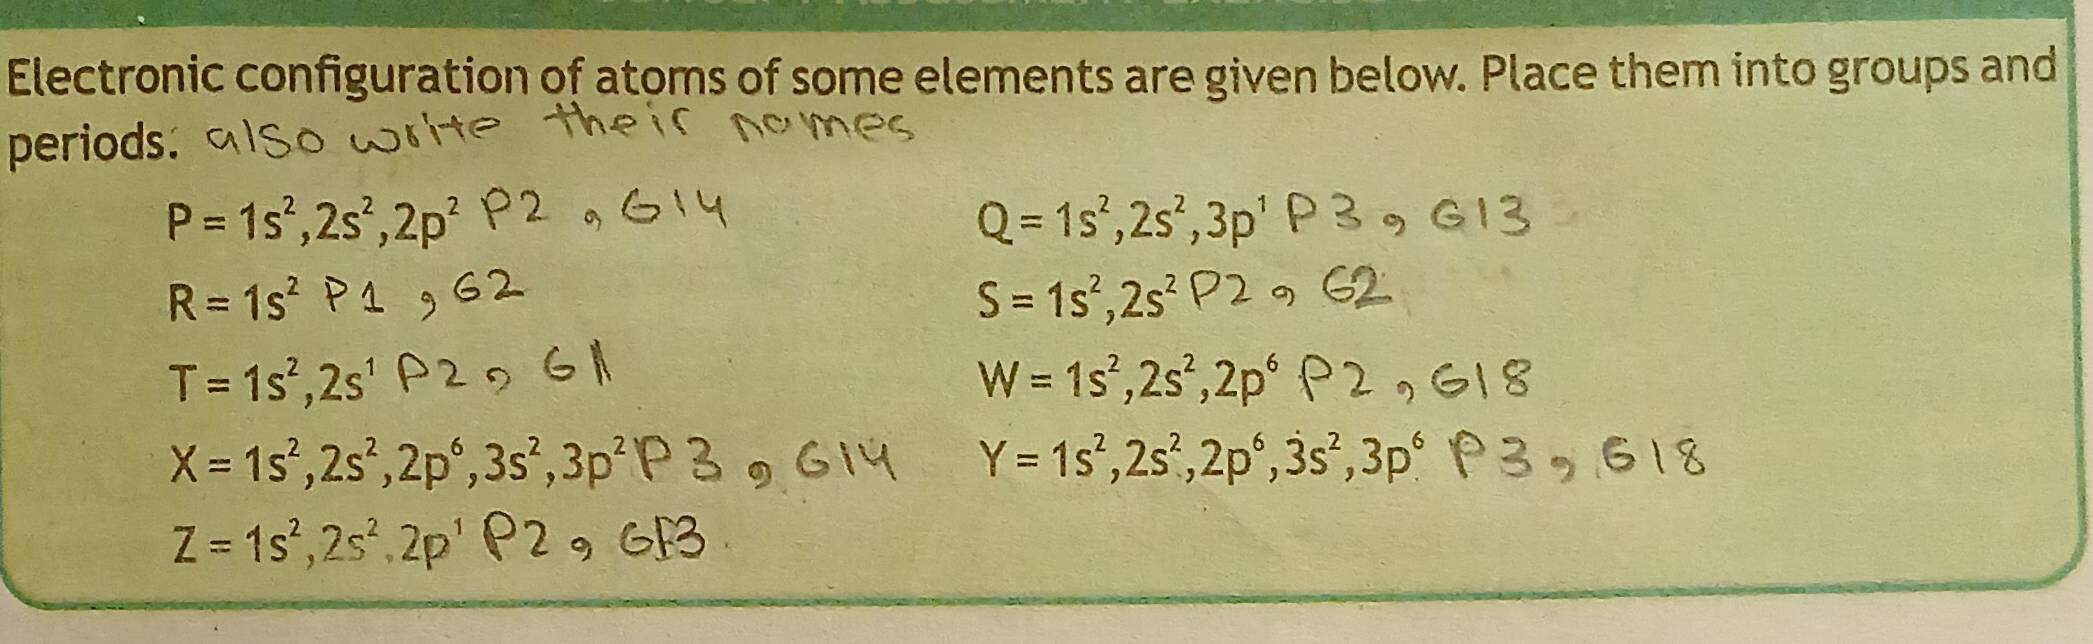 Electronic configuration of atoms of some elements are given below. Place them into groups and
periods. also write their names
P = 1s²,2s²,2p² P2 , G14
Q = 1s²,2s²,3p¹ P3 , G13
R = 1s² P1 , G2
S = 1s²,2s² P2 , G2
T = 1s²,2s¹ P2 , G1
W = 1s²,2s²,2p⁶ P2 , G18
X = 1s²,2s²,2p⁶,3s²,3p² P3 , G14
Y = 1s²,2s²,2p⁶,3s²,3p⁶ P3 , G18
Z = 1s²,2s²,2p¹ P2 , G13